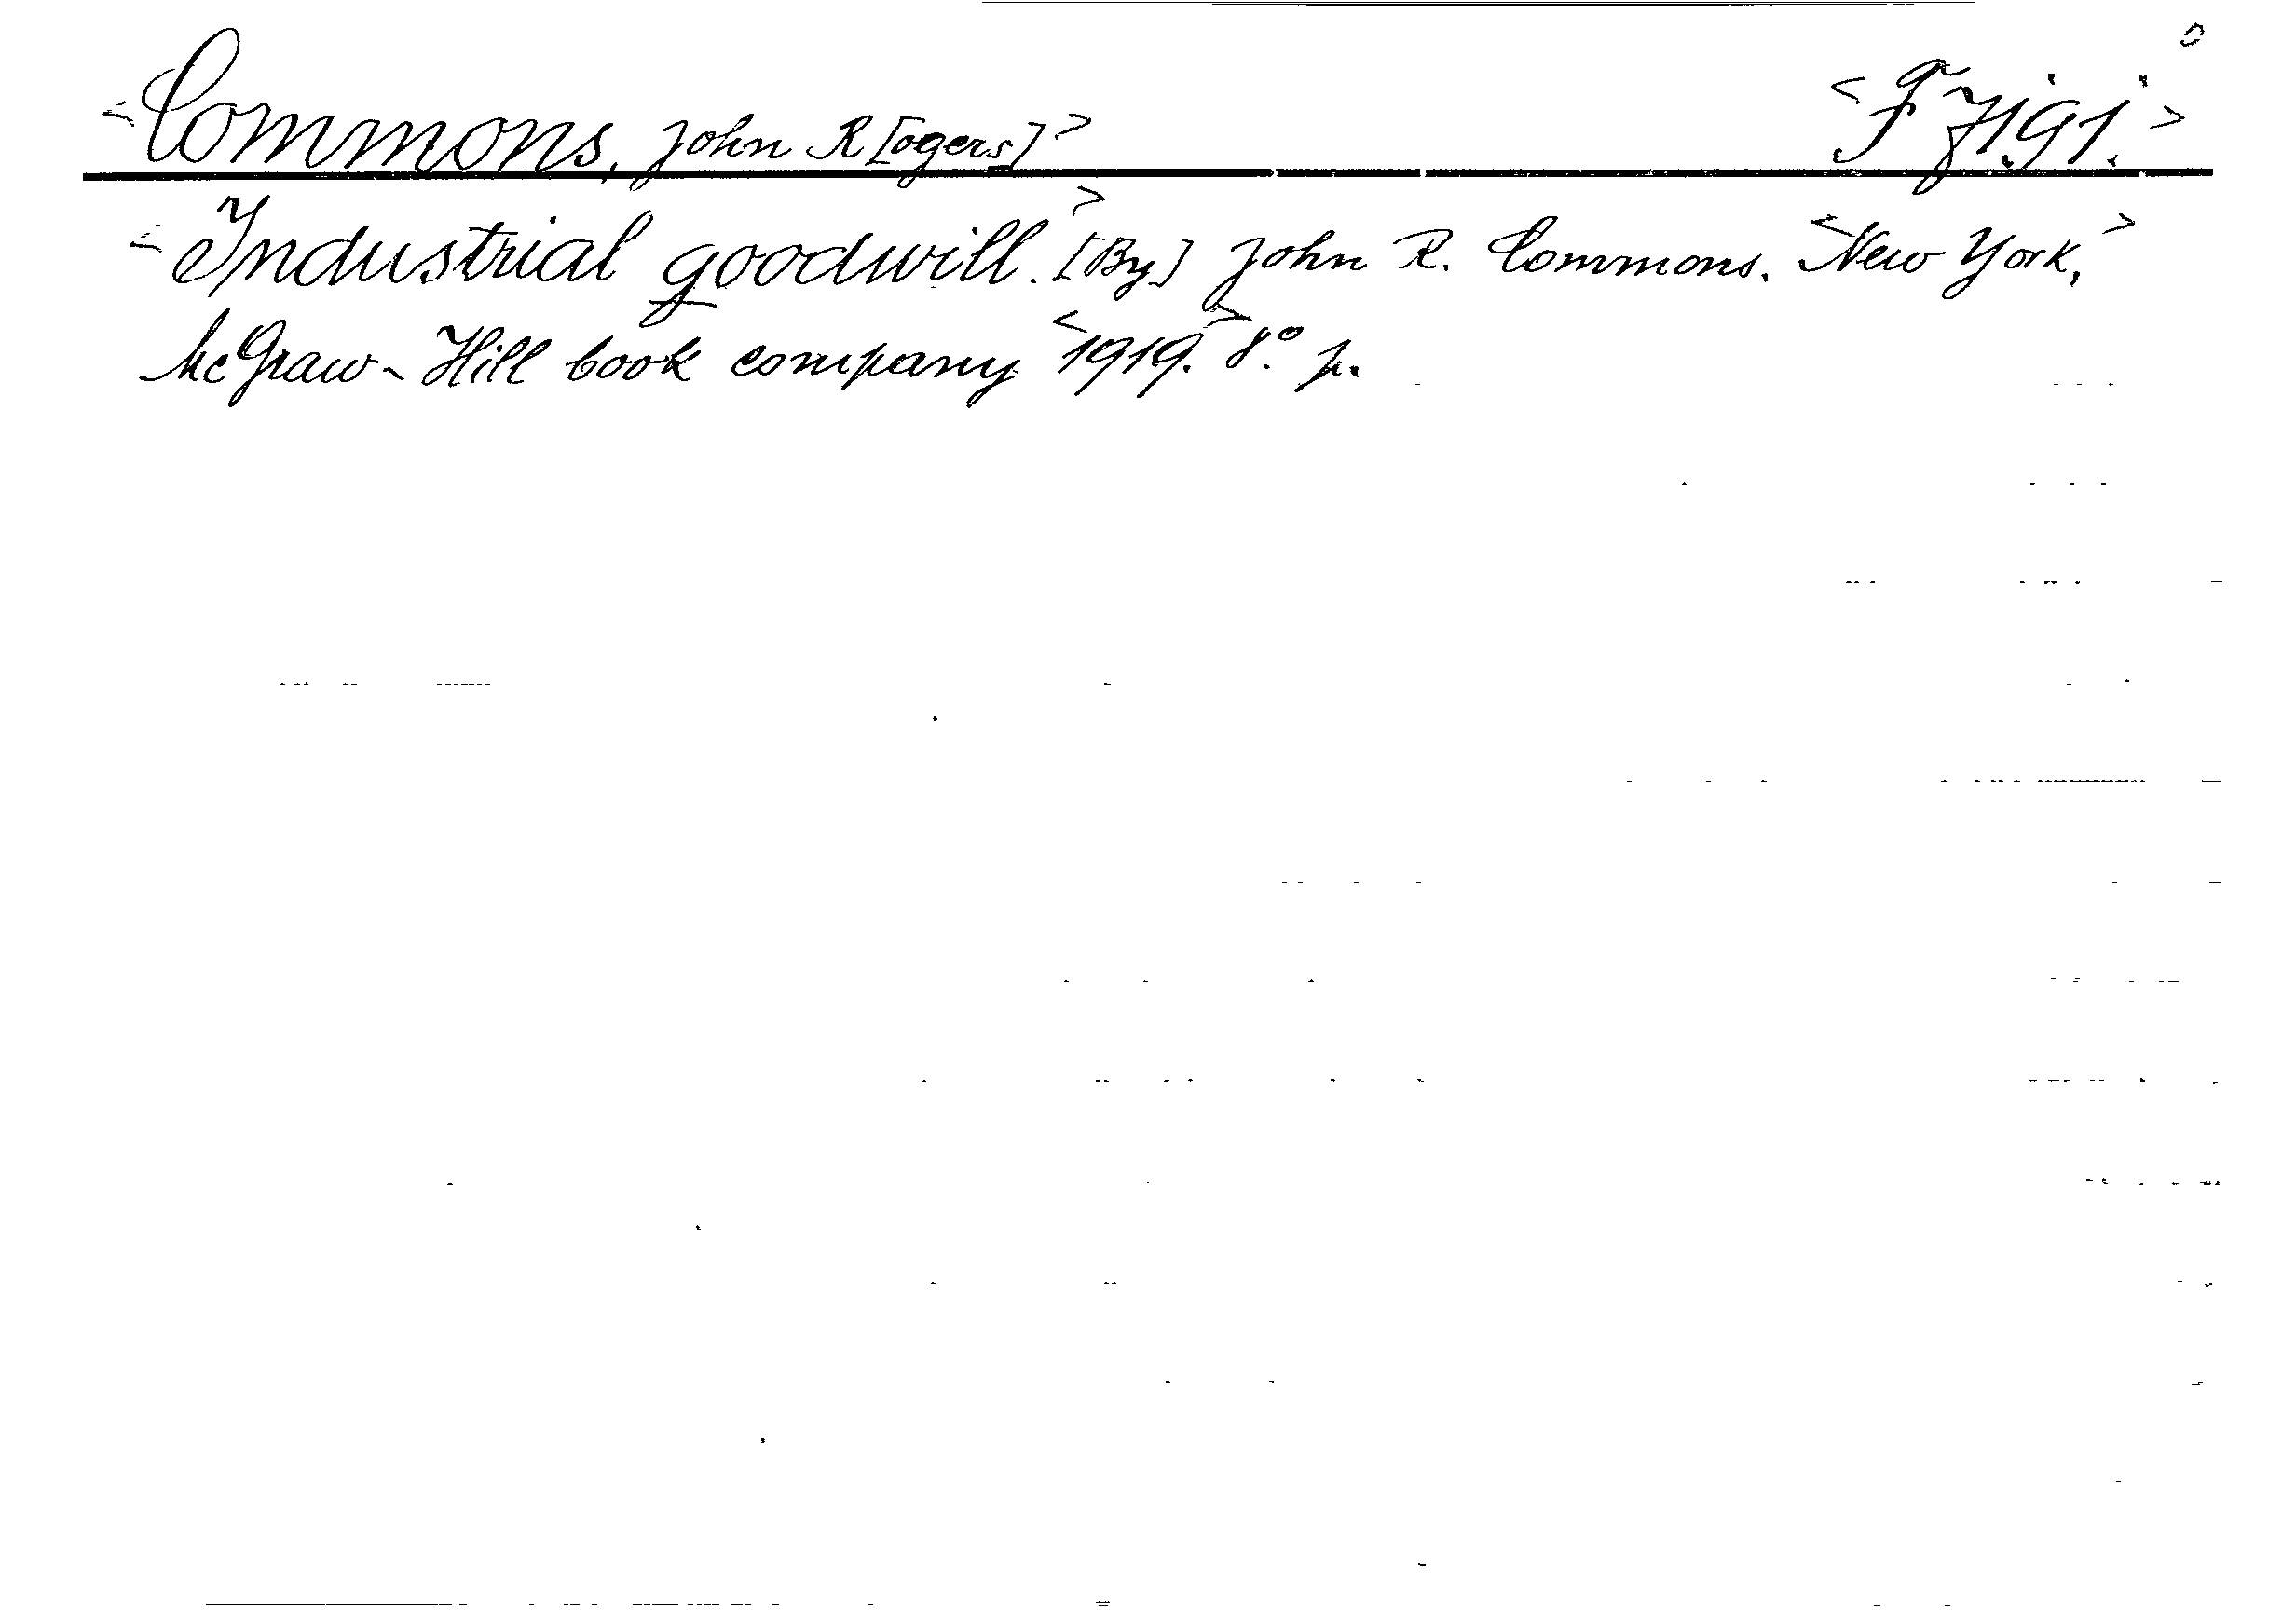 <Commons, John R[ogers]> <F 7i9i.>
<Industrial goodwill.> [By] John R. Commons. <New York,>
McGraw-Hill book company <1919.> 8° p.